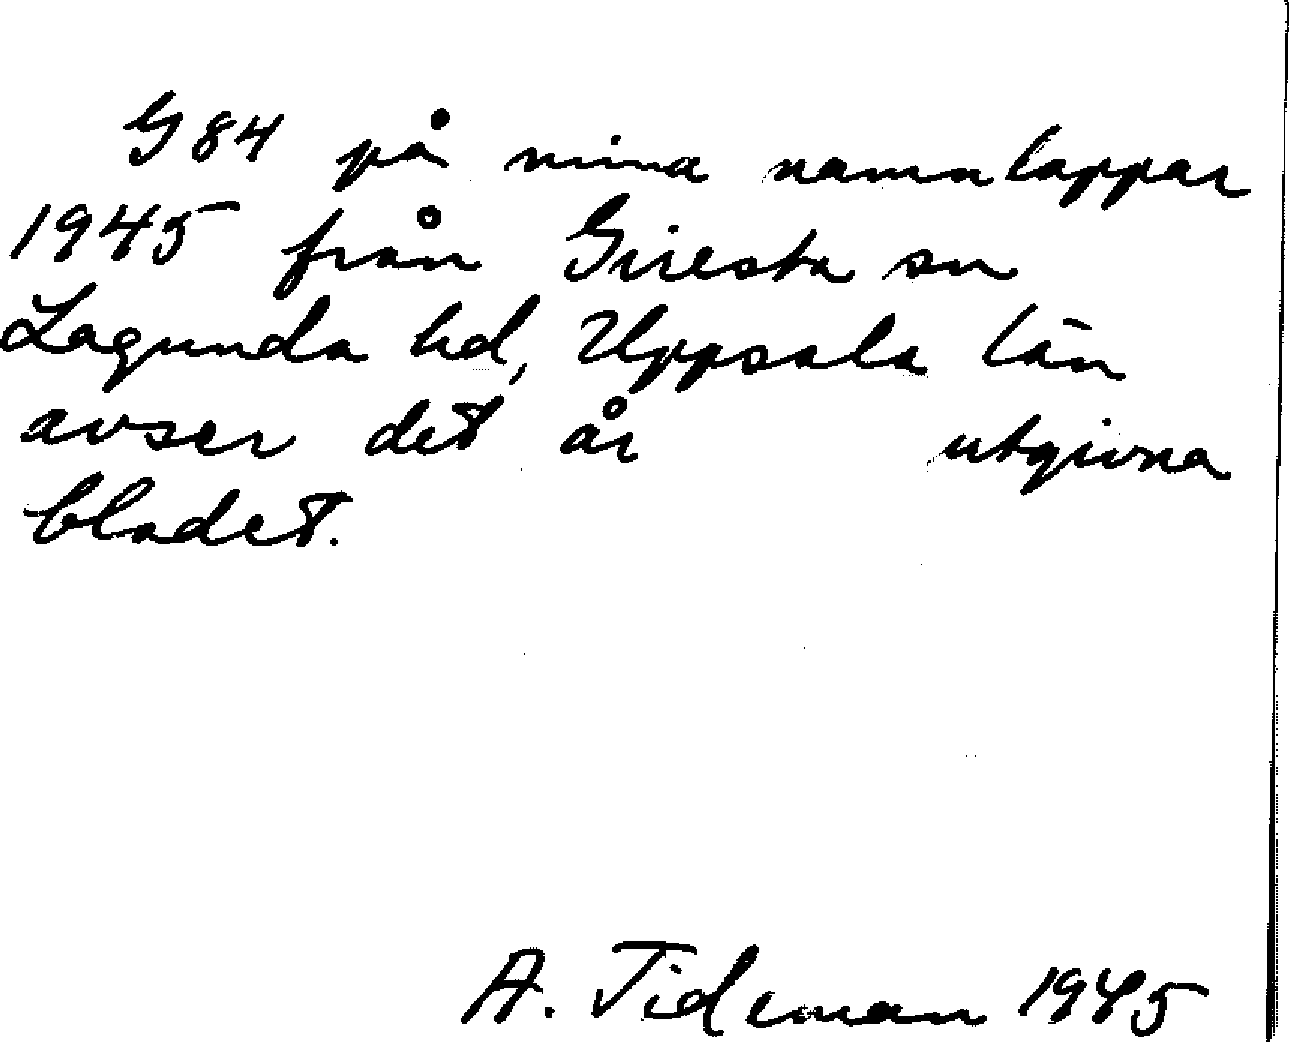 G 84 på mina namnlappar
1945 från Giresta sn
Lagunda hd, Uppsala län
avser det år utgivna
bladet.
A. Tideman 1945